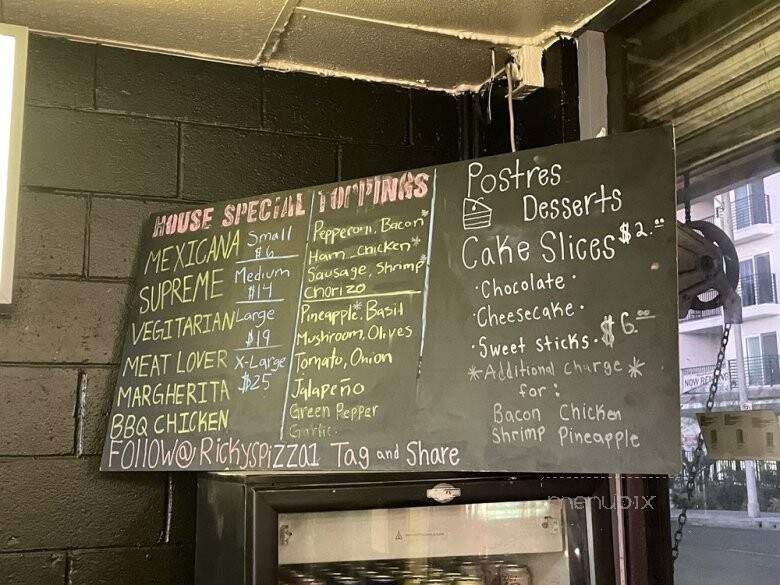 HOUSE SPECIAL
MEXICANA
SUPREME
VEGITARIAN
MEAT LOVER
MARGHERITA
BBQ CHICKEN
Small
$6
Medium
$14
Large
$19
X-Large
$25
TOPPINGS
Pepperoni, Bacon*
Ham, Chicken*
Sausage, Shrimp*
Chorizo
Pineapple* Basil
Mushroom, Olives
Tomato, Onion
Jalapeño
Green Pepper
Garlic
Postres
Desserts
Cake Slices $2.00
·Chocolate·
·Cheesecake·
·Sweet sticks· $6.00
*Additional charge*
for:
Bacon Chicken
Shrimp Pineapple
FOllOW@RickysPizza1 Tag and Share
menupix